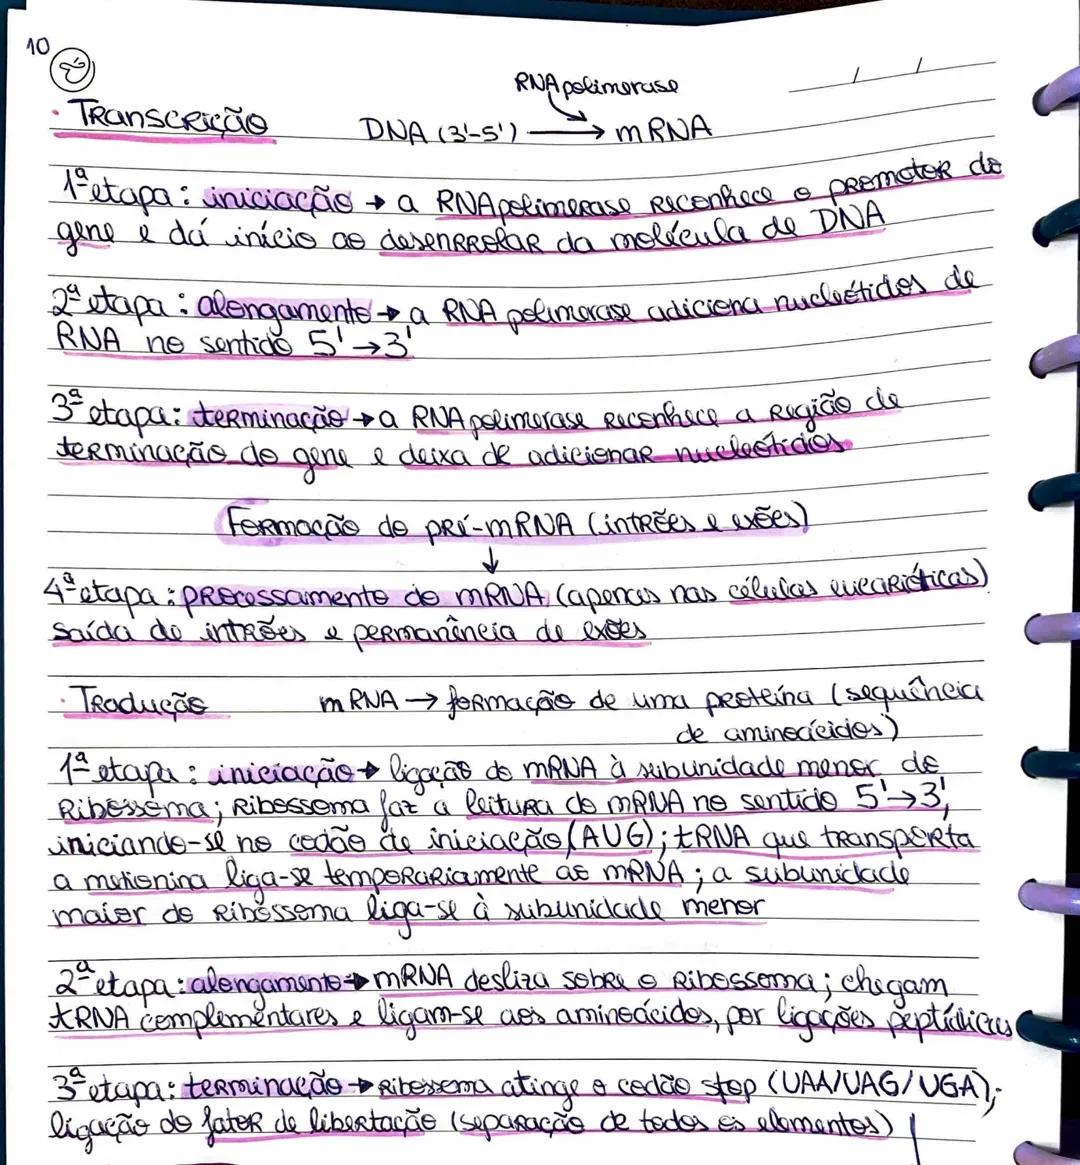 10
RNA polimerase
/ /
· Transcrição DNA (3'-5') → mRNA
1ª etapa: iniciação → a RNA polimerase reconhece o promotor do
gene e dá início ao desenrrolar da molécula de DNA
2ª etapa: alongamento → a RNA polimerase adiciona nucleótidos de
RNA no sentido 5'→3'
3ª etapa: terminação → a RNA polimerase reconhece a região de
terminação do gene e deixa de adicionar nucleótidos
Formação do pré-mRNA (intrões e exões)
↓
4ª etapa: processamento do mRNA (apenas nas células eucarióticas)
saída de intrões e permanência de exões
· Tradução mRNA → formação de uma proteína (sequência
de aminoácidos)
1ª etapa: iniciação → ligação do mRNA à subunidade menor do
Ribossoma; Ribossoma faz a leitura do mRNA no sentido 5'→3',
iniciando-se no codão de iniciação (AUG); tRNA que transporta
a metionina liga-se temporariamente ao mRNA; a subunidade
maior do Ribossoma liga-se à subunidade menor
2ª etapa: alongamento → mRNA desliza sobre o Ribossoma; chegam
tRNA complementares e ligam-se aos aminoácidos, por ligações peptídicas
3ª etapa: terminação → Ribossoma atinge o codão stop (UAA/UAG/UGA);
ligação do fator de libertação (separação de todos os elementos)